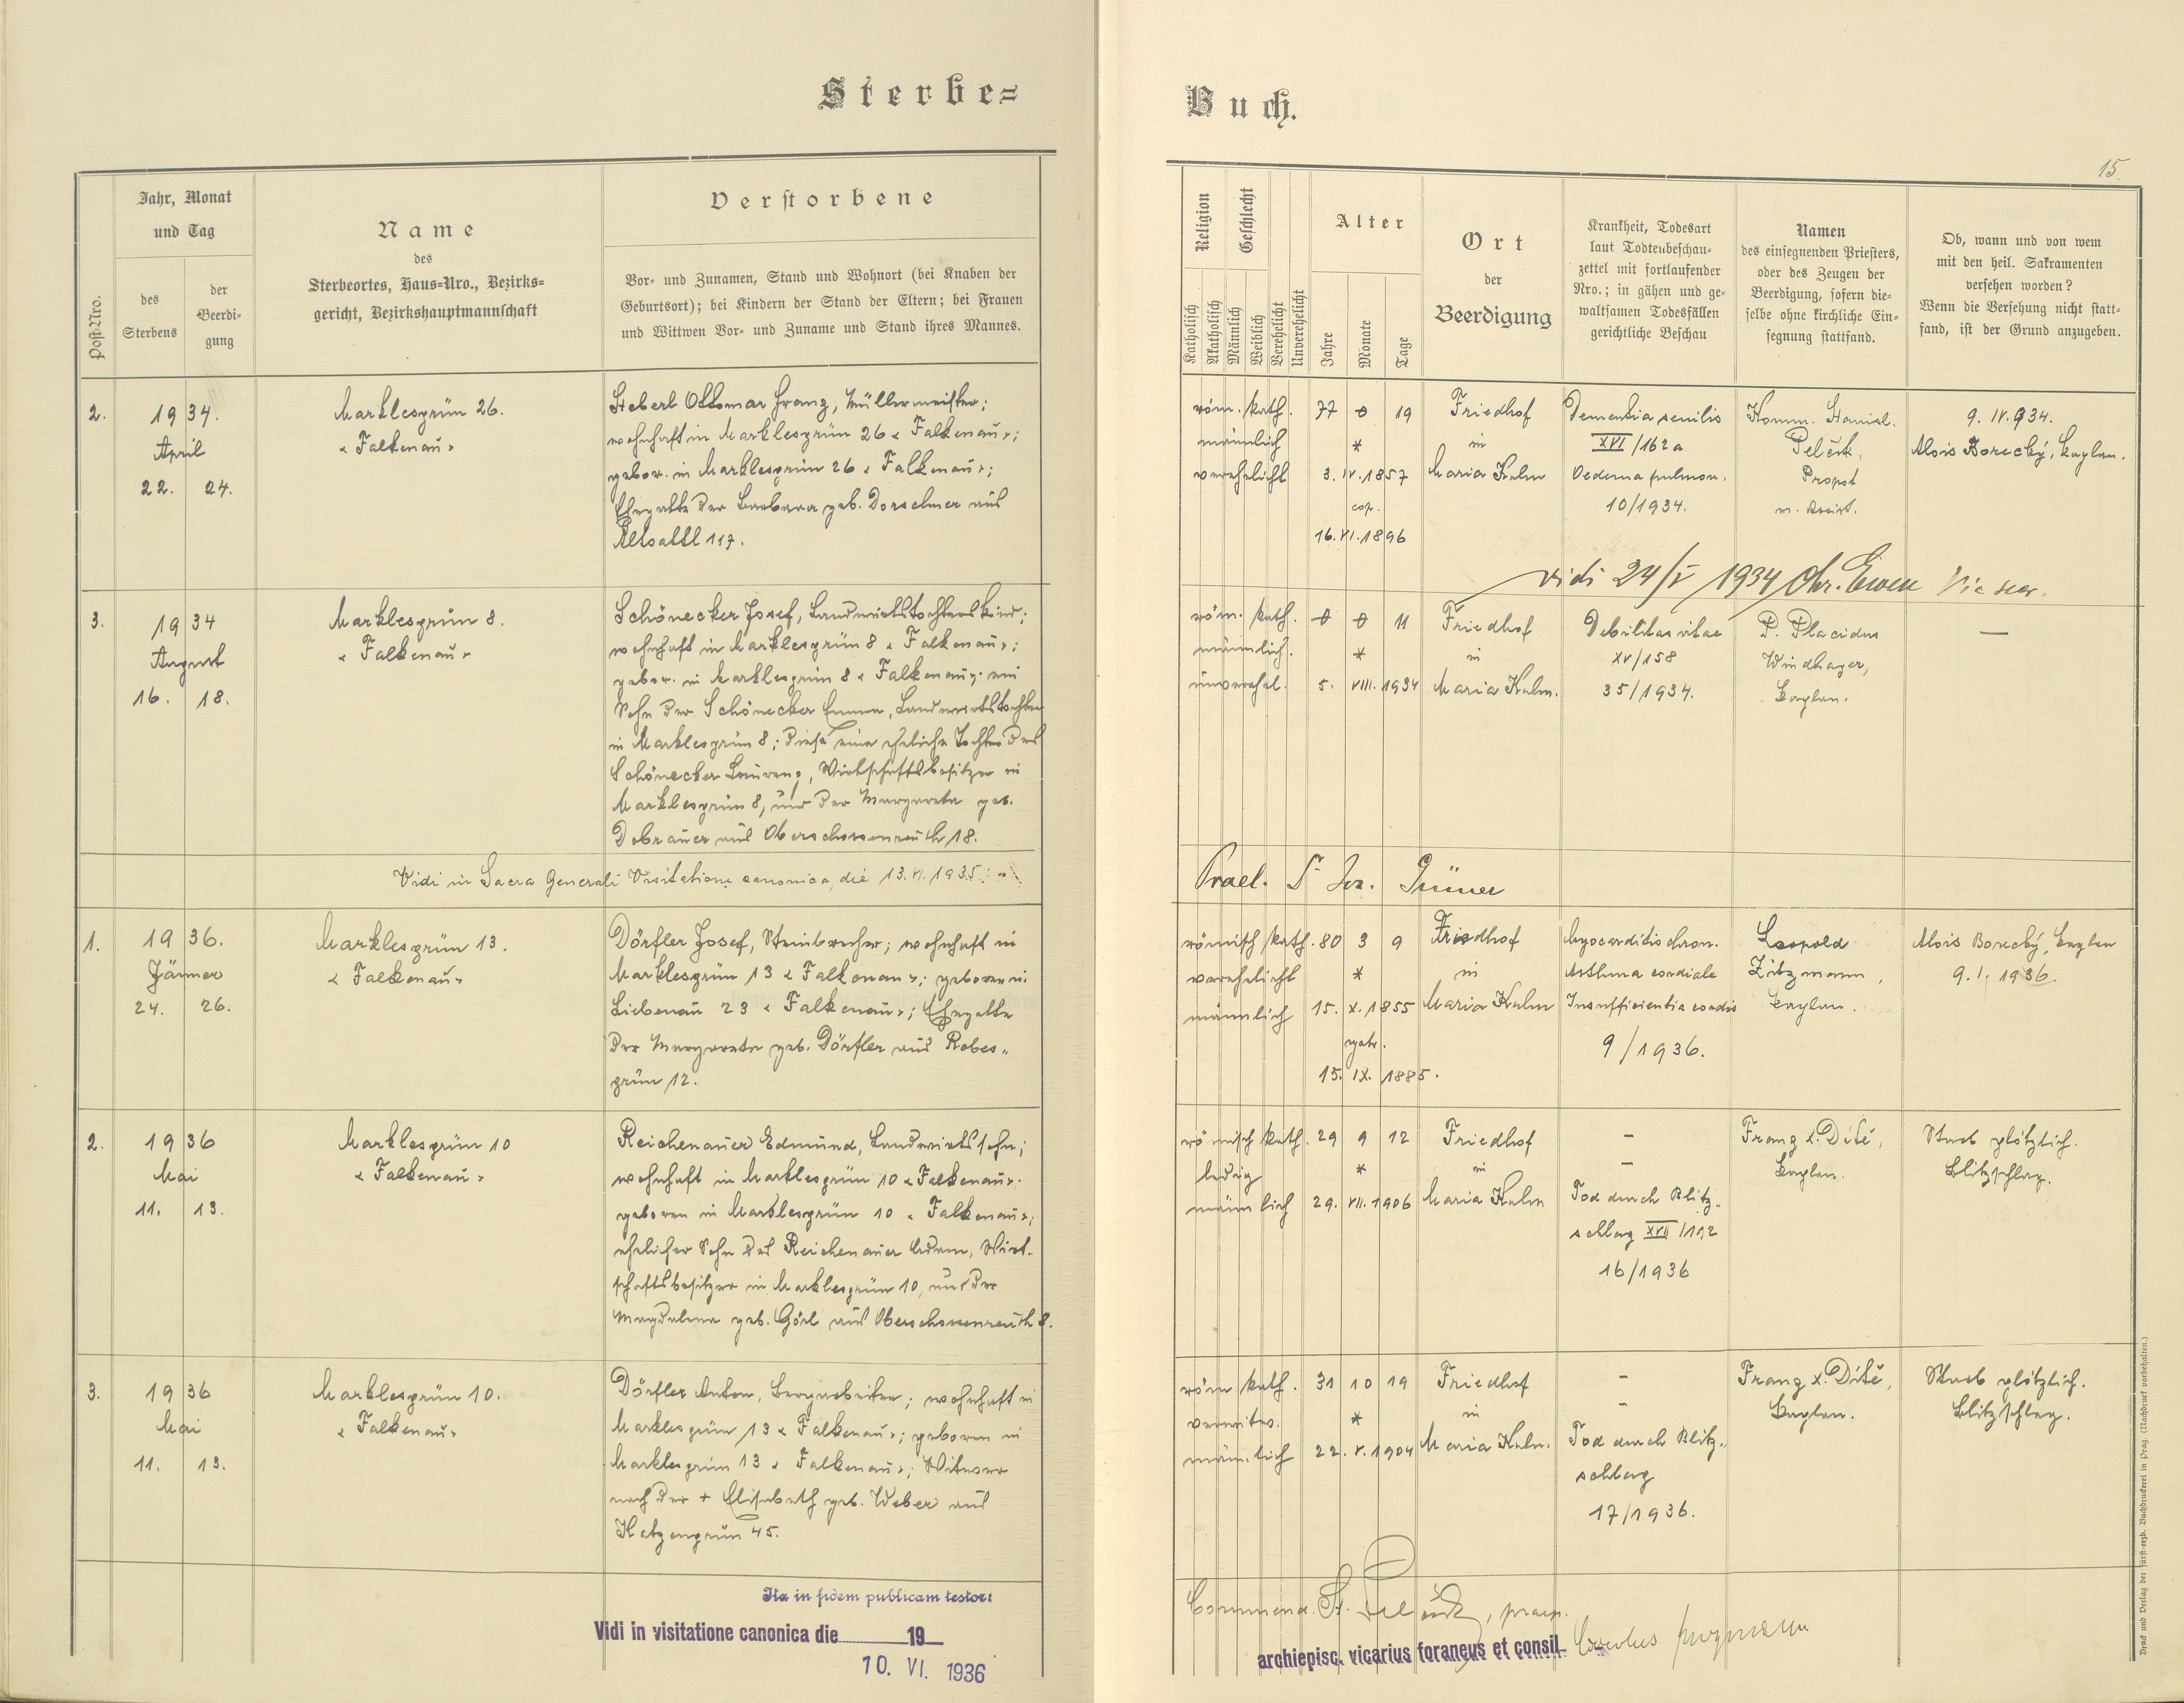 Sterbe=
Buch.
15.
Post-Nro.
Jahr, Monat
und Tag
des
Sterbens
der
Beerdi-
gung
Name
des
Sterbeortes, Haus-Nro., Bezirks-
gericht, Bezirkshauptmannschaft
Verstorbene
Vor- und Zunamen, Stand und Wohnort (bei Knaben der
Geburtsort); bei Kindern der Stand der Eltern; bei Frauen
und Wittwen Vor- und Zuname und Stand ihres Mannes.
Religion
Geschlecht
Katholisch
Akatholisch
Männlich
Weiblich
Verehelicht
Unverehelicht
Alter
Jahre
Monate
Tage
Ort
der
Beerdigung
Krankheit, Todesart
laut Todtenbeschau-
zettel mit fortlaufender
Nro.; in gähen und ge-
waltsamen Todesfällen
gerichtliche Beschau
Namen
des einsegnenden Priesters,
oder des Zeugen der
Beerdigung, sofern die-
selbe ohne kirchliche Ein-
segnung stattfand.
Ob, wann und von wem
mit den heil. Sakramenten
versehen worden?
Wenn die Versehung nicht statt-
fand, ist der Grund anzugeben.
2.
1934.
April
22. 24.
Marklesgrün 26.
« Falkenau »
Steberl Ottomar Franz, Müllermeister;
wohnhaft in Marklesgrün 26 « Falkenau »;
gebor. in Marklesgrün 26 « Falkenau »;
Ehegatte der Barbara geb. Dorschner aus
Altsattl 117.
röm. kath. 77 0 19
männlich *
verehelicht 3. IV. 1857
cop.
16. VI. 1896
Friedhof
in
Maria Kulm
Dementia senilis
XVI/162a
Oedema pulmon.
10/1934.
Komm. Stanisl.
Pelčík,
Propst
9. IV. 934.
Alois Borecký, Kaplan.
vidi 24/V 1934
3.
1934
August
16. 18.
Marklesgrün 8.
« Falkenau »
Schönecker Josef, Landwirtstochterskind;
wohnhaft in Marklesgrün 8 « Falkenau »;
gebor. in Marklesgrün 8 « Falkenau »; ein
Sohn der Schönecker Emma, Landwirtstochter
in Marklesgrün 8; diese eine eheliche Tochter des
Schönecker Laurenz, Wirtschaftsbesitzer in
Marklesgrün 8, und der Margareta geb.
Dobrauer aus Oberschossenreuth 18.
röm. kath. 0 0 11
männlich. *
unverehel. 5. VIII. 1934
Friedhof
in
Maria Kulm.
Debilitas vitae
XV/158
35/1934.
P. Placidus
Windhager,
Kaplan.
—
Vidi in Sacra Generali Visitatione canonica, die 13. VI. 1935.
Prael. Dr. Jos. Grüner
1.
1936.
Jänner
24. 26.
Marklesgrün 13.
« Falkenau »
Dörfler Josef, Steinbrecher; wohnhaft in
Marklesgrün 13 « Falkenau »; geboren in
Liebenau 23 « Falkenau »; Ehegatte
der Margareta geb. Dörfler aus Robes-
grün 12.
römisch kath. 80 3 9
verehelicht *
männlich 15. X. 1855
getr.
15. IX. 1885.
Friedhof
in
Maria Kulm
Myocarditis chron.
Asthma cordiale
Insufficientia cordis
9/1936.
Leopold
Zitzmann,
Kaplan.
Alois Borecký, Kaplan
9. I. 1936.
2.
1936
Mai
11. 13.
Marklesgrün 10
« Falkenau »
Reichenauer Edmund, Landwirtssohn;
wohnhaft in Marklesgrün 10 « Falkenau »
geboren in Marklesgrün 10 « Falkenau »;
ehelicher Sohn des Reichenauer Adam, Wirt-
schaftsbesitzer in Marklesgrün 10, und der
Magdalena geb. Görl aus Oberschossenreuth 8.
römisch kath. 29 9 12
ledig *
männlich 29. VII. 1906
Friedhof
in
Maria Kulm
–
–
Tod durch Blitz-
schlag XVII/192
16/1936
Franz X. Dítě,
Kaplan.
Starb plötzlich.
Blitzschlag.
3.
1936
Mai
11. 13.
Marklesgrün 10.
« Falkenau »
Dörfler Anton, Bergarbeiter; wohnhaft in
Marklesgrün 13 « Falkenau »; geboren in
Marklesgrün 13 « Falkenau »; Witwer
nach der + Elisabeth geb. Weber aus
Katzengrün 45.
röm kath. 31 10 19
verwitw. *
männlich 22. V. 1904
Friedhof
in
Maria Kulm.
–
–
Tod durch Blitz-
schlag
17/1936.
Franz X. Dítě,
Kaplan.
Starb plötzlich.
Blitzschlag.
Ita in fidem publicam testor:
Vidi in visitatione canonica die 19
10. VI. 1936
Commend. St. Pelčík, praep.
archiepisc. vicarius foraneus et consil.
Druck und Verlag der fürst-erzb. Buchdruckerei in Prag. (Nachdruck vorbehalten.)